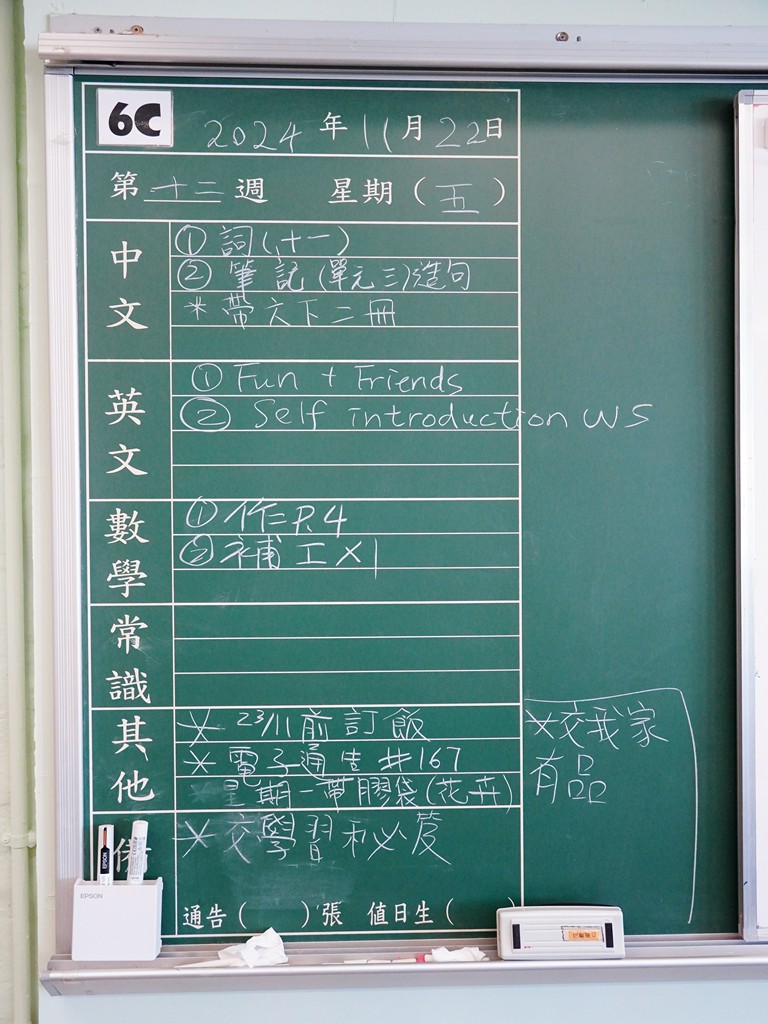 6C 2024年11月22日
第十二週 星期(五)
中文
① 詞(十一)
② 筆記(單元三)造句
* 帶六下二冊
英文
① Fun + Friends
② Self introduction WS
數學
① 作P.4
② 補工×1
常識
其他
* 23/11前訂飯
* 電子通告#167
星期一帶膠袋(花卉)
* 交我家
有品
備
* 交學習秘笈
通告( )張 值日生( )
EPSON
EPSON